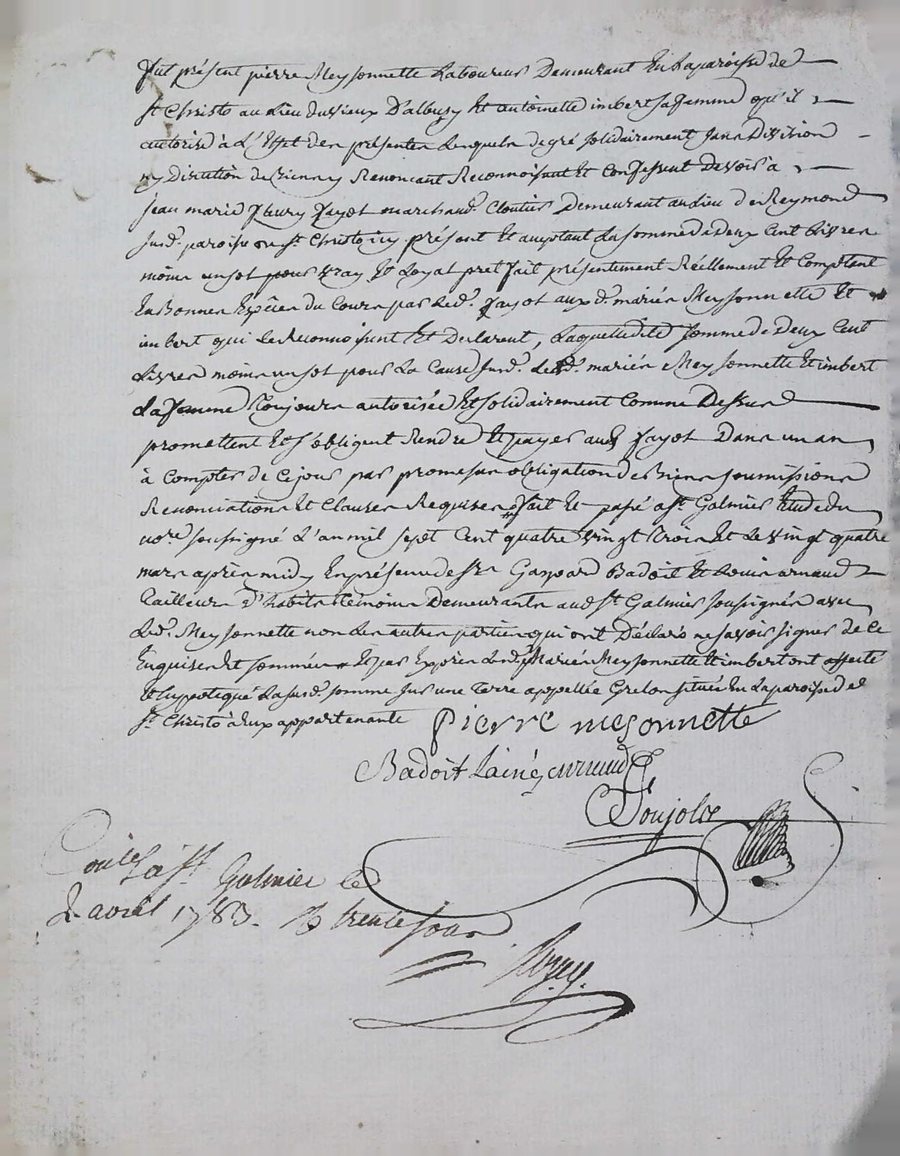 fut présent pierre Meysonnette Laboureur Demeurant En La paroisse de
st Christo au Lieu du vieux D'albuzy Et antoinette imbert sa famme qu'il
autorise à L'Effet des présentes Lesquels de gré solidairement sans Division
ny Discution de biens y Renoncant Reconnoissent Et Confessent Devoir à
jean marie fleury fayot marchand Cloutier Demeurant au Lieu de Reymond
susd. paroisse de st Christo icy présent Et aceptant La somme de Deux Cent Livres
moins un sot pour vray Et Loyal pret fait présentement Réellement Et Comptant
En Bonnes Espèces du Cours par Led. fayot aux d. mariés Meysonnette Et
imbert qui Le Reconnoissent Et Declarent, Laquelle dite somme de Deux Cent
Livres moins un sot pour La Cause susd. Lesd. mariés Meysonnette Et imbert
La famme Toujours autorisée Et solidairement Comme Dessus
promettent Et s'obligent Rendre Et payer aud. fayot Dans un an
à Compter de Ce jour par promesse obligation de Biens soumissions
Renonciations Et Clauses Requises fait Et passé a st. Galmier Etude du
nore. soussigné L'an mil sept Cent quatre vingt Trois Et Le vingt quatre
mars après midy En présence de srs Gaspard Badoit Et Louis arnaud
Tailleurs D'habits Témoins Demeurants aud. st Galmier soussignés avec
Led. Meysonnette non Les autres parties qui ont Déclaré ne savoir signer de Ce
Enquises Et sommées Et par Exprès Lesd. Mariés Meysonnette Et imbert ont affecté
Et hypotéqué La susd. somme sur une Terre appellée Grelon située En La paroisse de
st. Christo à Eux appartenante Pierre mesonnette
Badoit Lainé arnaud
Poujolx
Coulé à st Galmier le
2. avril 1783. R trente sous